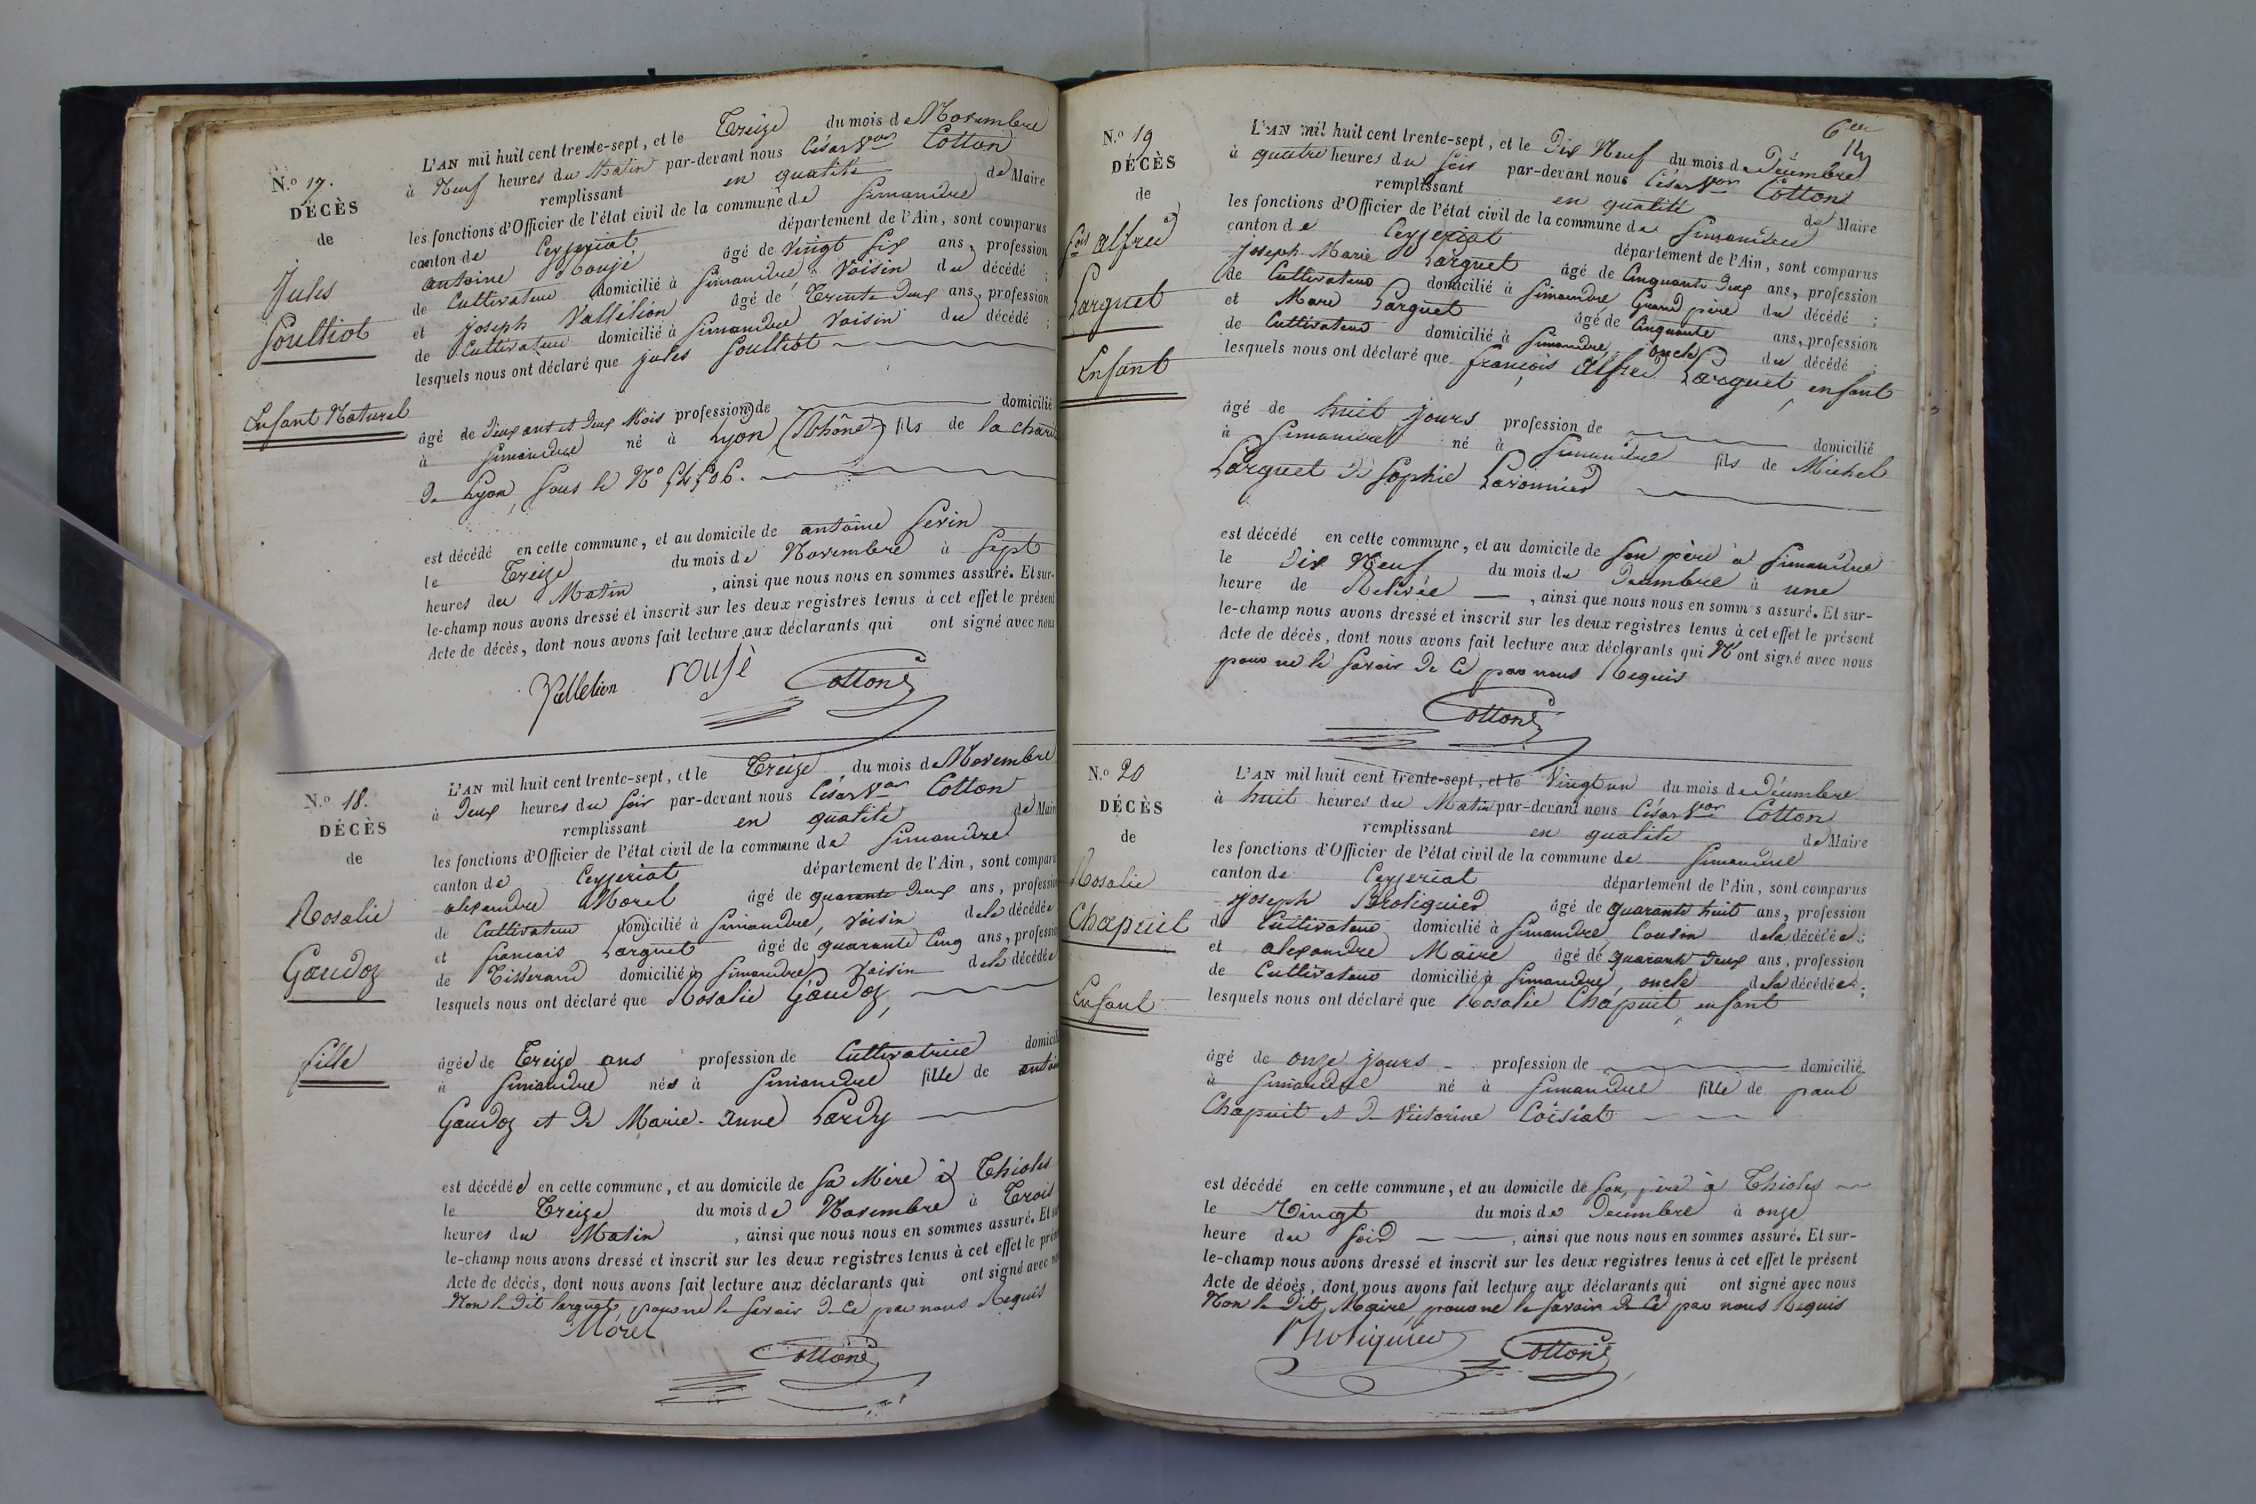 N.º 17.
DÉCÈS
de
Jules
Soulliot
Enfant Naturel
L'AN mil huit cent trente-sept, et le Treize du mois de Novembre
à Neuf heures du Matin par-devant nous César Vor Cotton
remplissant en qualité de Maire
les fonctions d'Officier de l'état civil de la commune de Simandre
canton de Ceyzeriat département de l'Ain, sont comparus
antoine Roujé âgé de vingt six ans, profession
de Cultivateur domicilié à Simandre, Voisin du décédé ;
et joseph Vallélion âgé de Trente Deux ans, profession
de Cultivateur domicilié à Simandre Voisin du décédé ;
lesquels nous ont déclaré que jules Soulliot
âgé de Deux ans et Deux Mois profession de domicilié
à Simandre né à Lyon (Rhône) fils de la charité
De Lyon, sous le Nº
est décédé en cette commune, et au domicile de antoine Serin
le Treize du mois de Novembre à Sept
heures du Matin, ainsi que nous nous en sommes assuré. Et sur-
le-champ nous avons dressé et inscrit sur les deux registres tenus à cet effet le présent
Acte de décès, dont nous avons fait lecture aux déclarants qui ont signé avec nous
Vallelion roujé Cotton
N.º 18.
DÉCÈS
de
Rosalie
Gaudoz
fille
L'AN mil huit cent trente-sept, et le Treize du mois de Novembre
à Deux heures du soir par-devant nous César Vor Cotton
remplissant en qualité de Maire
les fonctions d'Officier de l'état civil de la commune de Simandre
canton de Ceyzeriat département de l'Ain, sont comparus
alexandre Morel âgé de quarante Deux ans, profession
de Cultivateur domicilié à Simandre, voisin de la décédée
et francois Larguet âgé de quarante Cinq ans, profession
de Tisserand domicilié à Simandre, voisin de la décédée
lesquels nous ont déclaré que Rosalie Gaudoz,
âgée de Treize ans profession de Cultivatrice domicilié
à Simandre née à Simandre fille de antoine
Gaudoz et De Marie-Anne Lardy
est décédée en cette commune, et au domicile de sa Mère à Thioles
le Treize du mois de Novembre à Trois
heures du Matin, ainsi que nous nous en sommes assuré. Et sur-
le-champ nous avons dressé et inscrit sur les deux registres tenus à cet effet le présent
Acte de décès, dont nous avons fait lecture aux déclarants qui ont signé avec nous
Non le Dit larguet, pour ne le savoir De Ce par nous Requis
Morel
Cotton
6me
N.º 19
DÉCÈS
de
fois alfred
Larguet
Enfant
L'AN mil huit cent trente-sept, et le Dix Neuf du mois de Décembre
à quatre heures du soir par-devant nous César Vor Cotton
remplissant en qualité de Maire
les fonctions d'Officier de l'état civil de la commune de Simandre
canton de Ceyzeriat département de l'Ain, sont comparus
joseph Marie Larguet âgé de Cinquante Deux ans, profession
de Cultivateur domicilié à Simandre, Grand père du décédé ;
et Marc Larguet âgé de Cinquante ans, profession
de Cultivateur domicilié à Simandre, oncle du décédé ;
lesquels nous ont déclaré que françois Alfred Larguet, enfant
âgé de huit jours profession de domicilié
à Simandre né à Simandre fils de Michel
Larguet De Sophie Laronnier
est décédé en cette commune, et au domicile de son père à Simandre
le Dix Neuf du mois de Décembre à une
heure de Relevée, ainsi que nous nous en somm s assuré. Et sur-
le-champ nous avons dressé et inscrit sur les deux registres tenus à cet effet le présent
Acte de décès, dont nous avons fait lecture aux déclarants qui N'ont signé avec nous
pour ne le savoir De Ce par nous Requis
Cotton
N.º 20
DÉCÈS
de
Rosalie
Chapuit
Enfant
L'AN mil huit cent trente-sept, et le Vingt un du mois de Décembre
à huit heures du Matin par-devant nous César Vor Cotton
remplissant en qualité de Maire
les fonctions d'Officier de l'état civil de la commune de Simandre
canton de Ceyzeriat département de l'Ain, sont comparus
joseph Brotiquier âgé de quarante huit ans, profession
de Cultivateur domicilié à Simandre, Cousin de la décédée ;
et alexandre Maire âgé de quarante Deux ans, profession
de Cultivateur domicilié à Simandre, oncle de la décédée ;
lesquels nous ont déclaré que Rosalie Chapuit, enfant
âgé de onze jours profession de domicilié
à Simandre né à Simandre fille de paul
Chapuit et De Victorine Coisiat
est décédé en cette commune, et au domicile de son père à Thioles
le Vingt du mois de Décembre à onze
heure du soir, ainsi que nous nous en sommes assuré. Et sur-
le-champ nous avons dressé et inscrit sur les deux registres tenus à cet effet le présent
Acte de décès, dont nous avons fait lecture aux déclarants qui ont signé avec nous
Non le Dit Maire, pour ne le savoir De Ce par nous Requis
Brotiquier Cotton